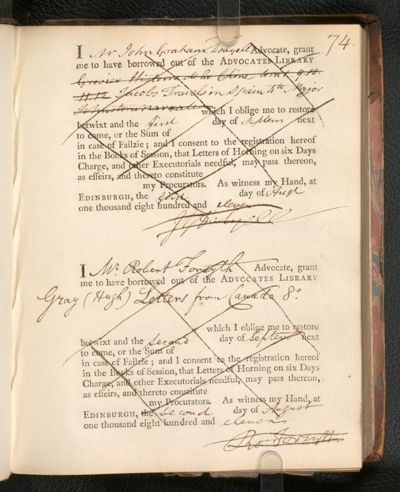 74.
I Mr John Graham Dalyell Advocate, grant
me to have borrowed out of the ADVOCATES LIBRARY
Grosier Histoire de la Chine
Jacobs Travels in Spain 4to Major
which I oblige me to restore
betwixt and the first day of Septem next
to come, or the Sum of
in case of Failzie; and I consent to the registration hereof
in the Books of Session, that Letters of Horning on six Days
Charge, and other Executorials needful, may pass thereon,
as effeirs, and thereto constitute
my Procurators. As witness my Hand, at
EDINBURGH, the first day of August
one thousand eight hundred and eleven
J G Dalyell
I Mr Robert Forsyth Advocate, grant
me to have borrowed out of the ADVOCATES LIBRARY
Gray (Hugh) Letters from Canada 8o.
which I oblige me to restore
betwixt and the second day of Septem next
to come, or the Sum of
in case of Failzie; and I consent to the registration hereof
in the Books of Session, that Letters of Horning on six Days
Charge, and other Executorials needful, may pass thereon,
as effeirs, and thereto constitute
my Procurators. As witness my Hand, at
EDINBURGH, the second day of August
one thousand eight hundred and eleven
Ro. Forsyth